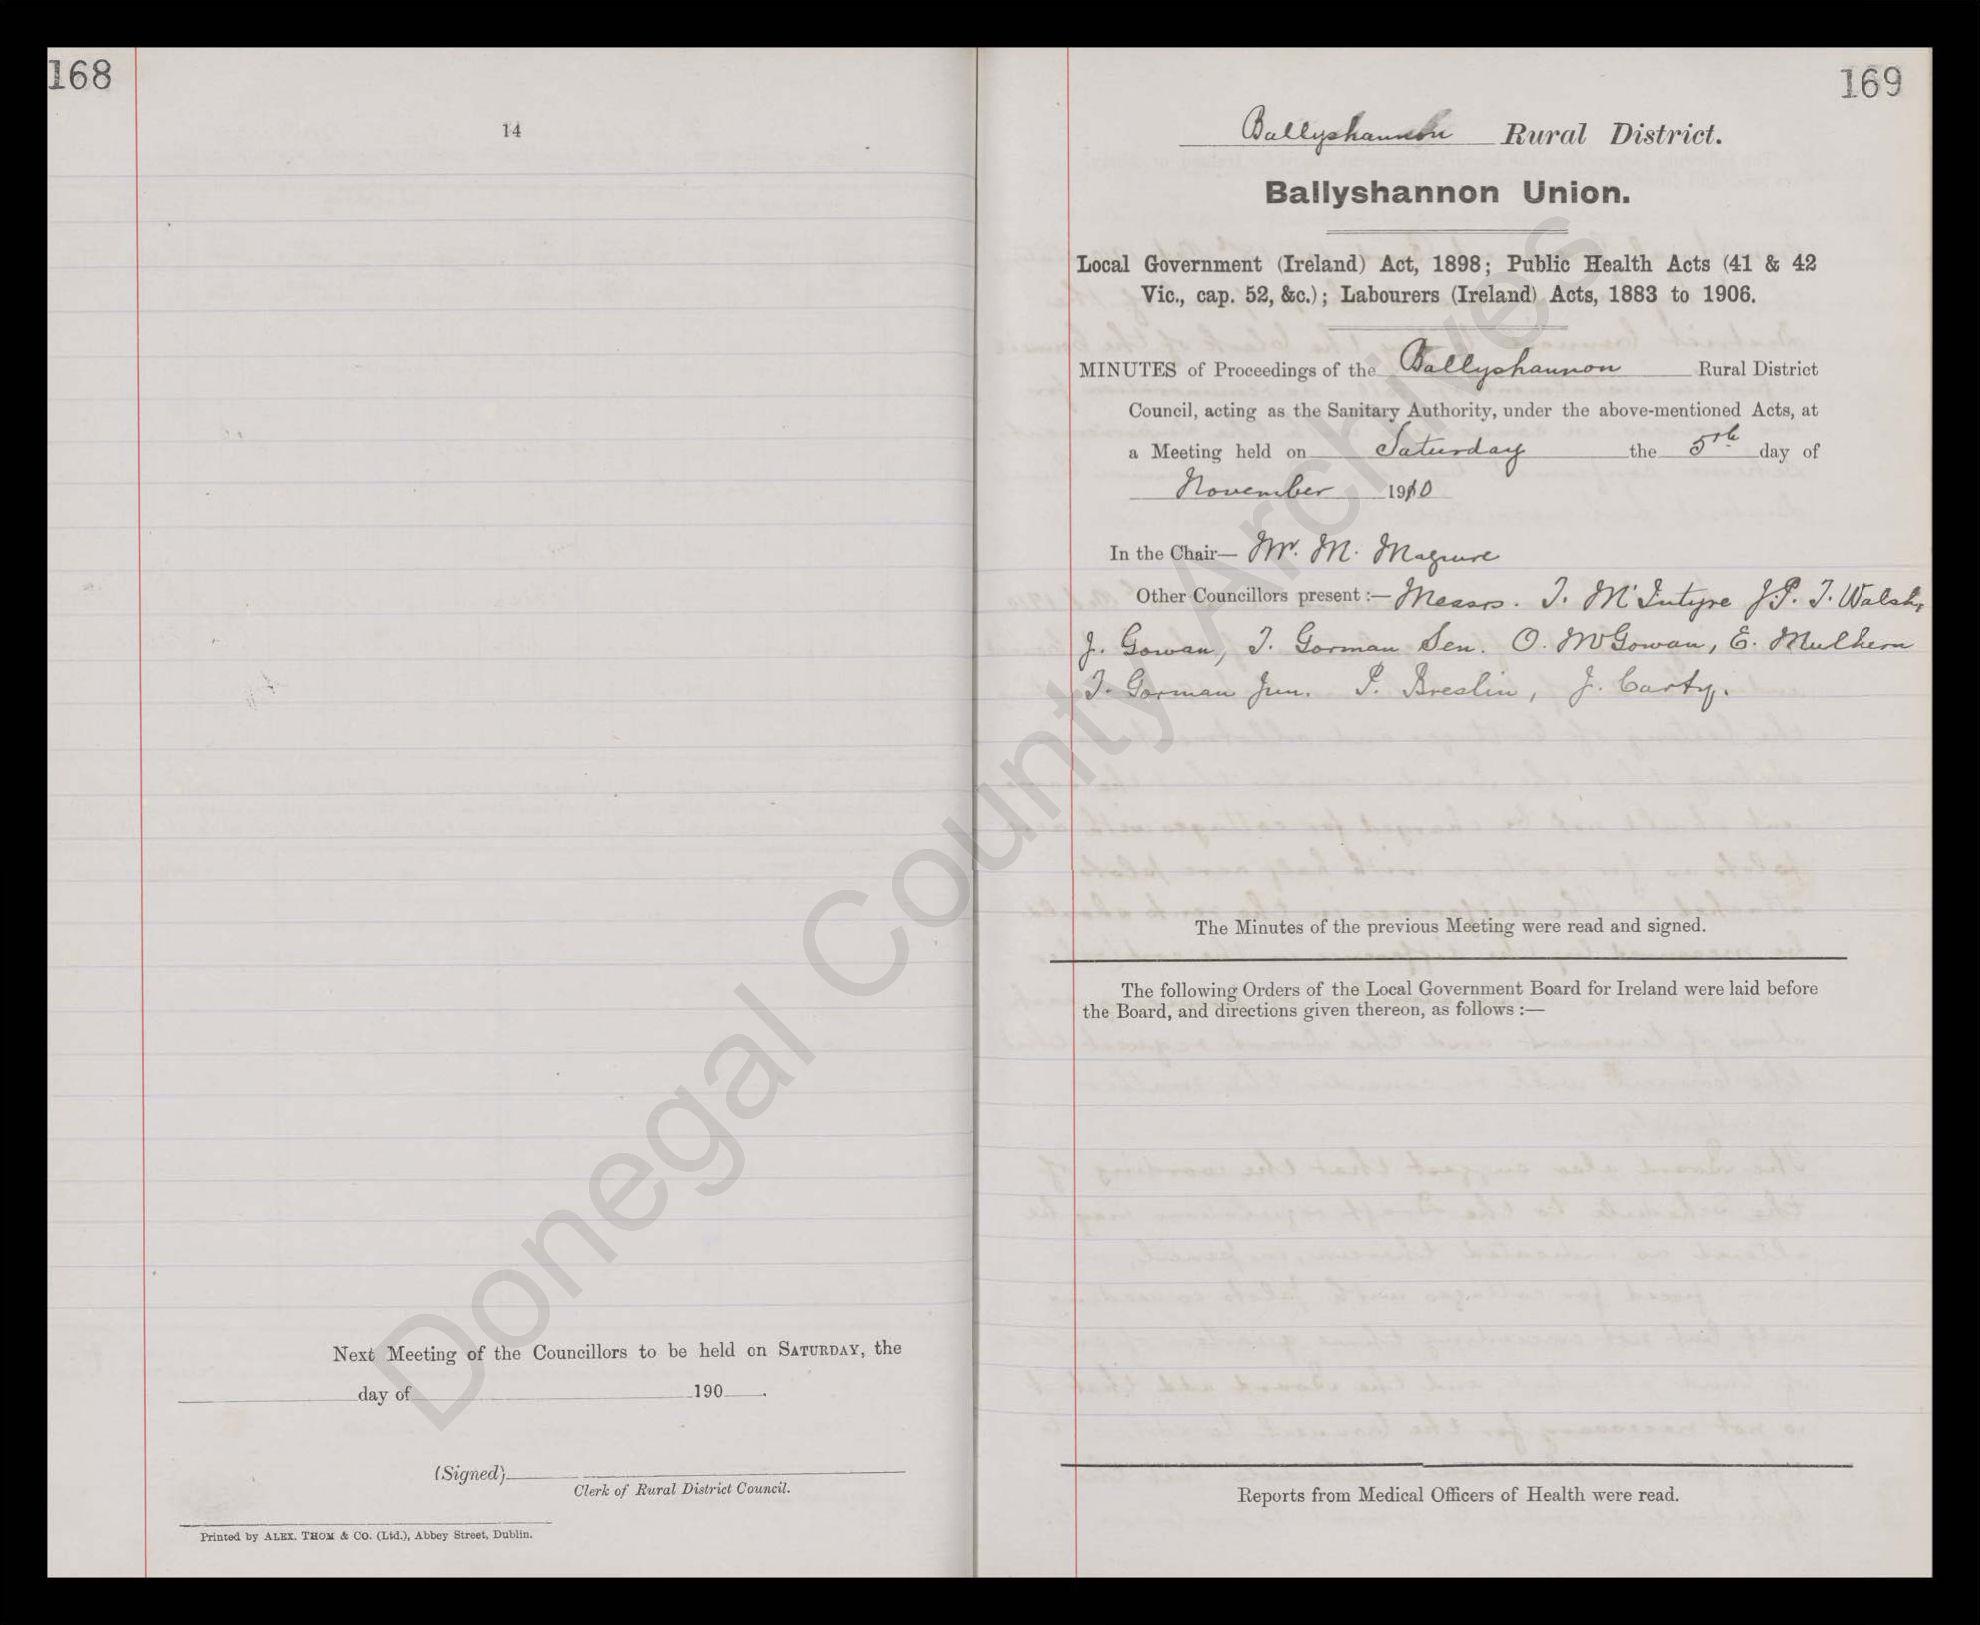 168
14
Next Meeting of the Councillors to be held on SATURDAY, the
day of 190 .
(Signed)
Clerk of Rural District Council.
Printed by ALEX. THOM & CO. (Ltd.), Abbey Street, Dublin.
169
Ballyshannon Rural District.
Ballyshannon Union.
Local Government (Ireland) Act, 1898; Public Health Acts (41 & 42
Vic., cap. 52, &c.); Labourers (Ireland) Acts, 1883 to 1906.
MINUTES of Proceedings of the Ballyshannon Rural District
Council, acting as the Sanitary Authority, under the above-mentioned Acts, at
a Meeting held on Saturday the 5th day of
November 1910
In the Chair— Mr. M. Maguire
Other Councillors present :— Messrs. T. McIntyre J.P. T. Walsh,
J. Gowan, T. Gorman Sen. O. McGowan, E. Mulhern
T. Gorman Jun. P. Breslin, J. Carty.
The Minutes of the previous Meeting were read and signed.
The following Orders of the Local Government Board for Ireland were laid before
the Board, and directions given thereon, as follows :—
Reports from Medical Officers of Health were read.
Donegal County Archives